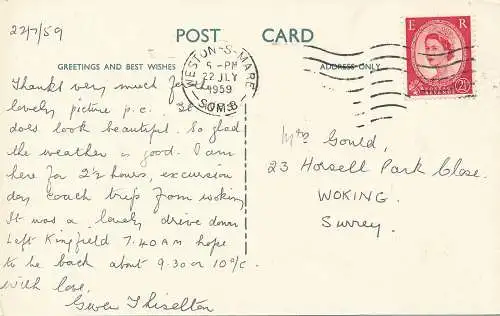 22/7/59
POST CARD
GREETINGS AND BEST WISHES
ADDRESS ONLY
WESTON-S-MARE
5-PM
22 JLY
1959
SOM
E R
2½
Thanks very much for
lovely picture p.c. It
does look beautiful. So glad
the weather is good. I am
here for 2½ hours, excursion
day coach trip from woking
It was a lovely drive down
Left Kingfield 7.40AM hope
to be back about 9.30 or 10 o/c.
with love.
Gwen Thiselton
Mrs Gould,
23 Horsell Park Close.
WOKING.
Surrey.